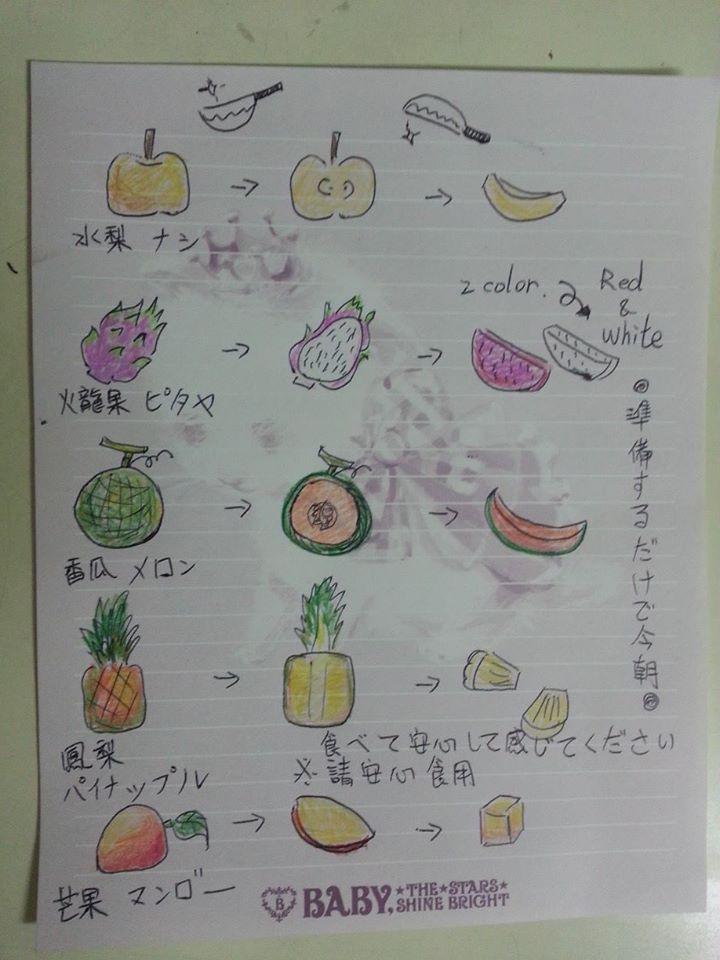 水梨 ナシ
2 color. Red
&
white
火龍果 ピタヤ
準備するだけで今朝
香瓜 メロン
鳳梨
パイナップル
食べて安心して感じてください
※請安心食用
芒果 マンゴー
B BABY, ★THE★STARS★
SHINE BRIGHT